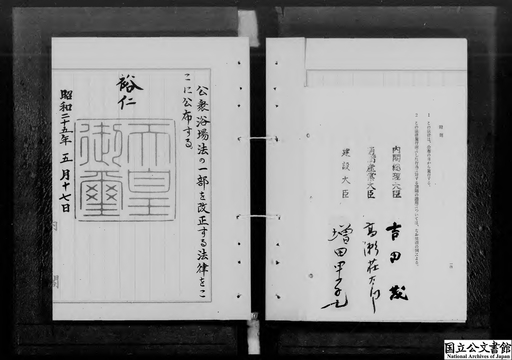 附則
1 この法律は、公布の日から施行する。
内閣総理大臣 吉田茂
高瀬荘太郎
建設大臣 増田甲子七
公衆浴場法の一部を改正する法律をこ
こに公布する
裕仁
天皇
御璽
昭和二十五年五月十七日
国立公文書館
National Archives of Japan